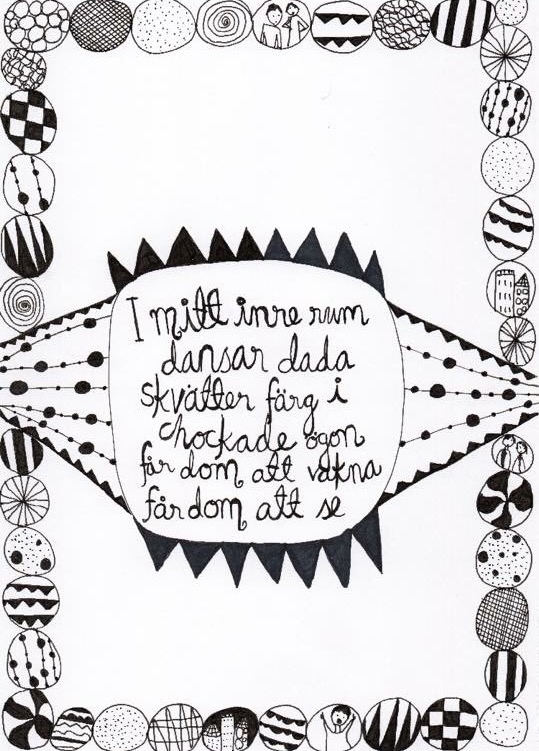 I mitt inre rum
dansar dada
skvätter färg i
chockade ögon
får dom att vakna
får dom att se